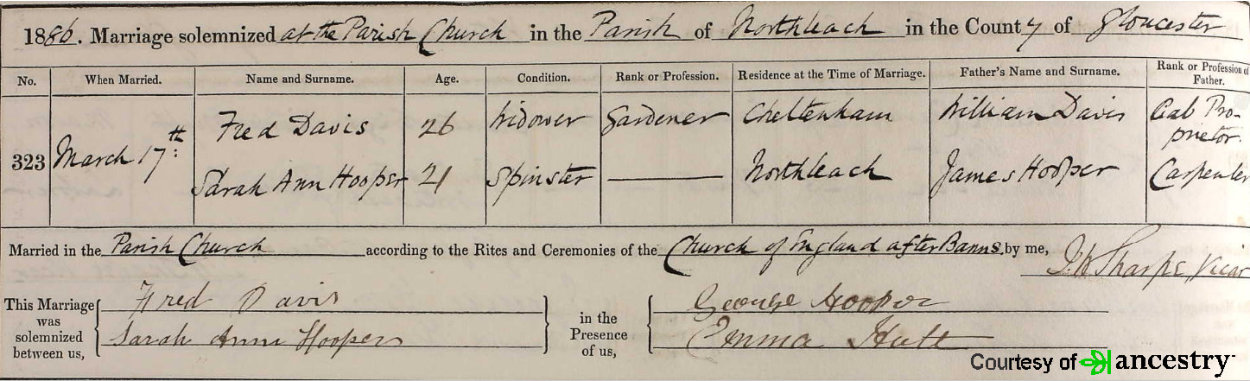 1886. Marriage solemnized at the Parish Church in the Parish of Northleach in the County of Gloucester
No. When Married. Name and Surname. Age. Condition. Rank or Profession. Residence at the Time of Marriage. Father's Name and Surname. Rank or Profession of Father.
323 March 17th: Fred Davis 26 Widower Gardener Cheltenham William Davis Cab Pro-prietor.
Sarah Ann Hooper 21 Spinster ——— Northleach James Hooper Carpenter
Married in the Parish Church according to the Rites and Ceremonies of the Church of England after Banns. by me,
Sharpe, Vicar
This Marriage was solemnized between us, Fred Davis in the Presence of us, George Hooper
Sarah Ann Hooper Emma
Courtesy of ancestry